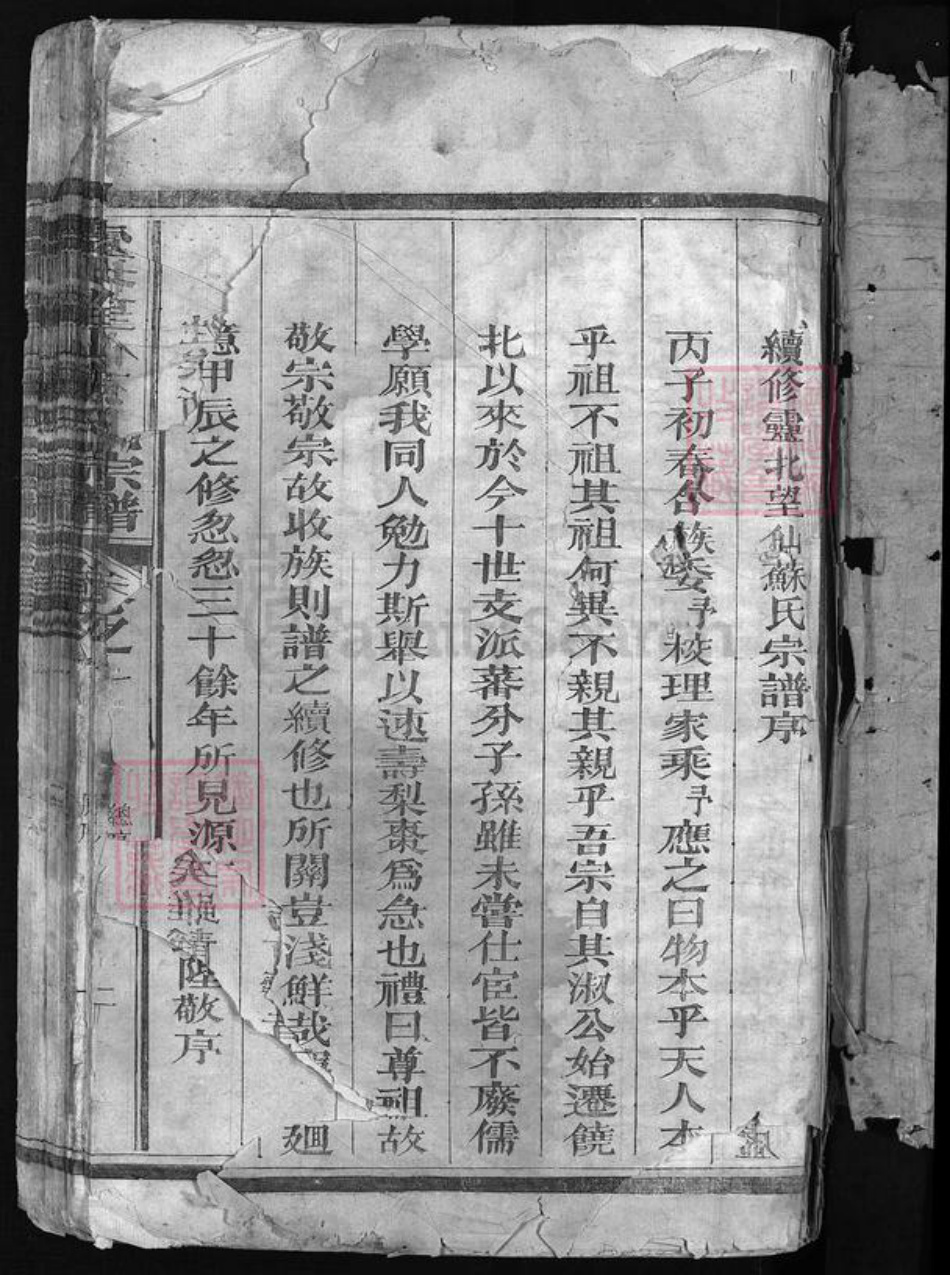 續修靈北望仙蘇氏宗譜序
丙子初春合族委予校理家乘予應之曰物本乎天人本
乎祖不祖其祖何異不親其親乎吾宗自其淑公始遷饒
北以來於今十世支派蕃分子孫雖未嘗仕宦皆不廢儒
學願我同人勉力斯舉以速壽梨棗為急也禮曰尊祖故
敬宗敬宗故收族則譜之續修也所關豈淺鮮哉 廻
憶甲辰之修忽忽三十餘年所見源 陞敬序
宗譜